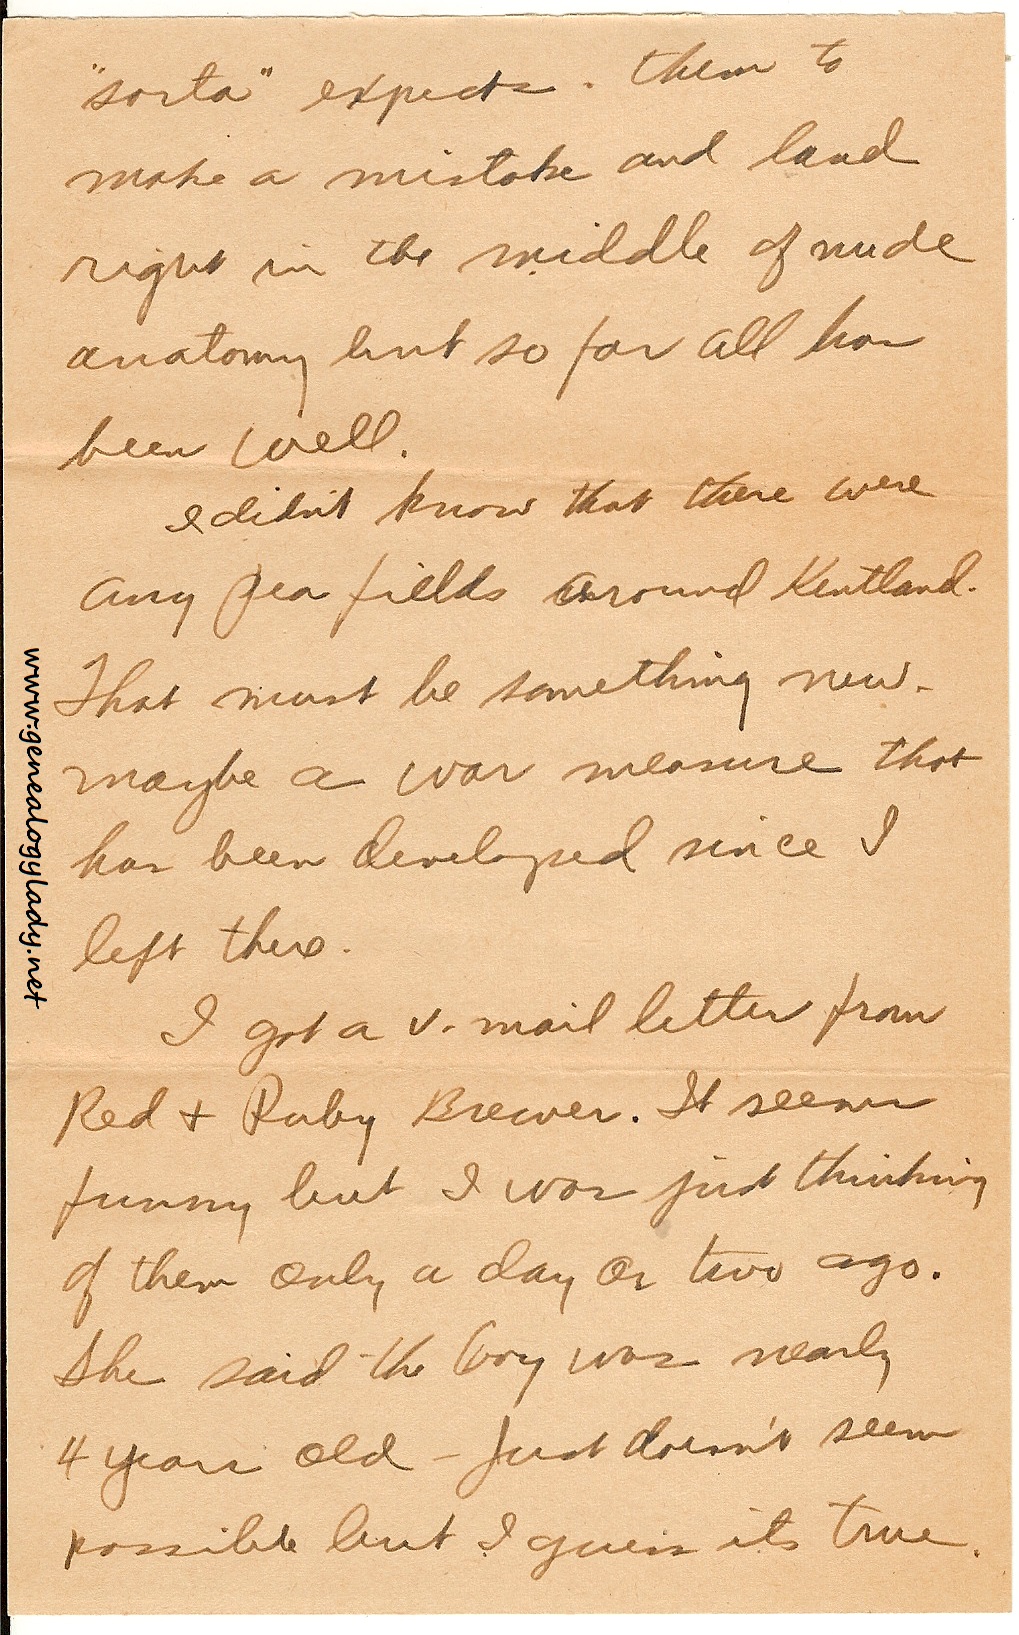 "sorta" expects. them to
make a mistake and land
right in the middle of nude
anatomy but so far all has
been well.
I didn't know that there were
any pea fields around Kentland.
That must be something new -
maybe a war measure that
has been developed since I
left there.
I got a v-mail letter from
Red + Ruby Brewer. It seems
funny but I was just thinking
of them only a day or two ago.
She said the boy was nearly
4 years old - Just doesn't seem
possible but I guess its true.
www.genealogylady.net